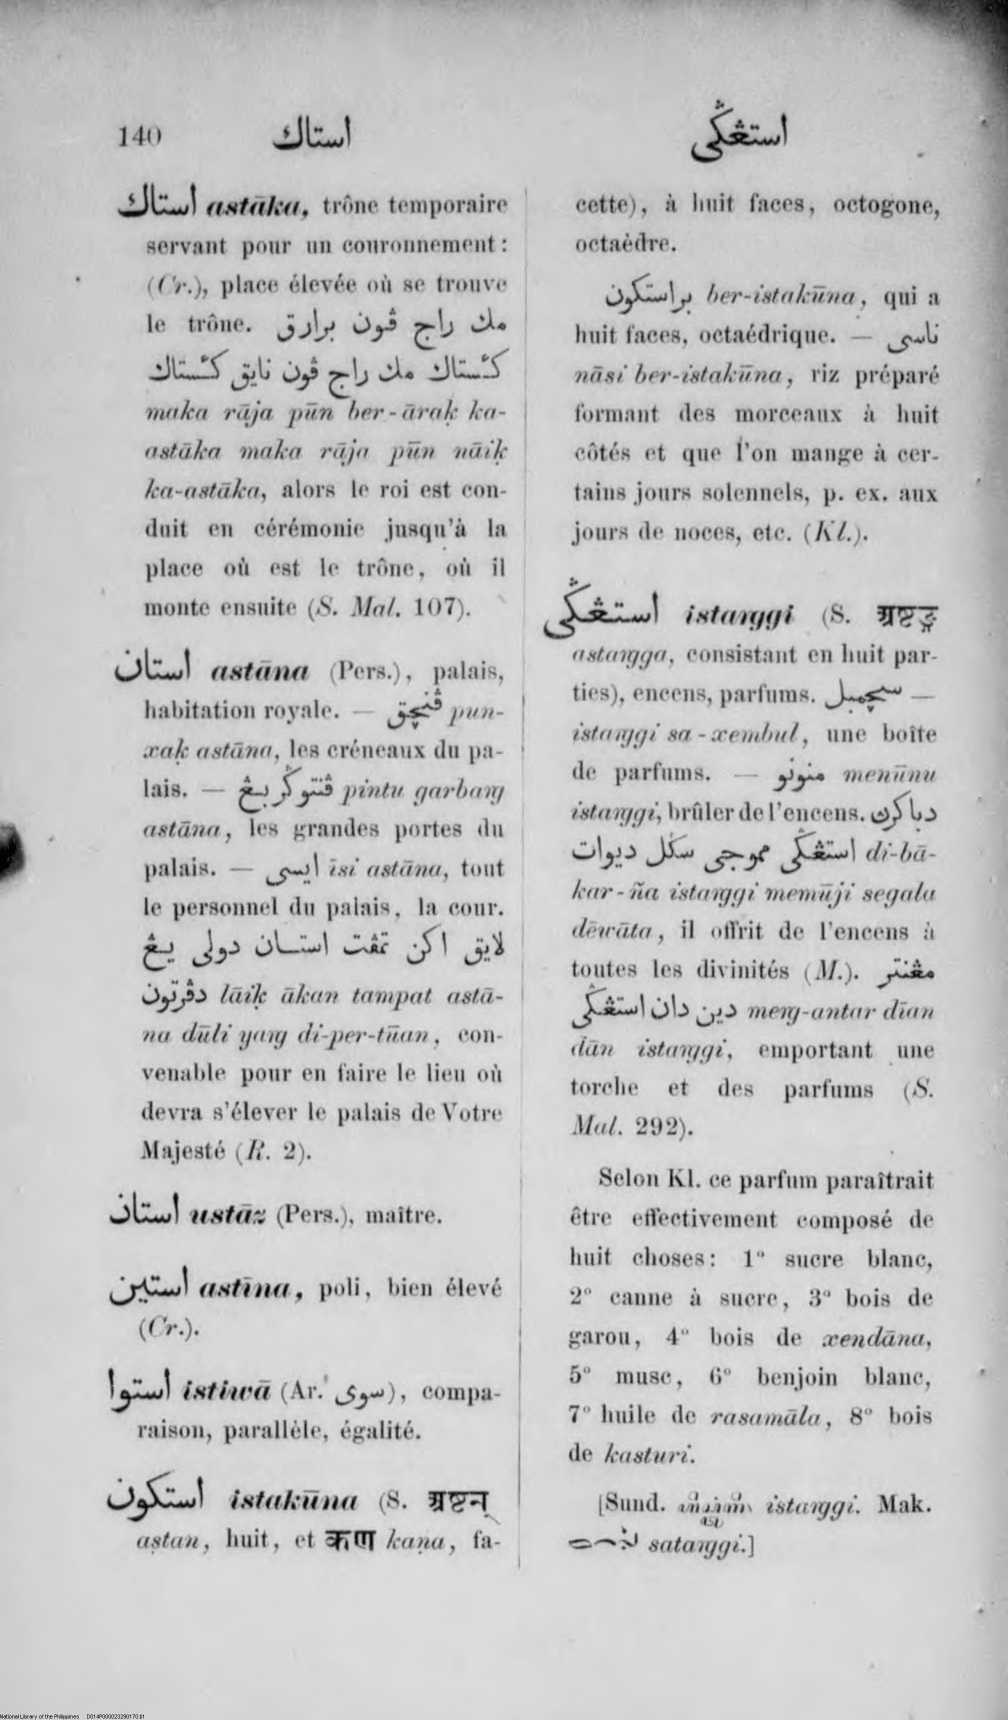 140 استاك استڠݢي
استاك astāka, trône temporaire
servant pour un couronnement:
(Cr.), place élevée où se trouve
le trône. مك راج ڤون برارق
كأستاك مك راج ڤون نايق كأستاك
maka rāja pūn ber-āraḳ ka-
astāka maka rāja pūn nāiḳ
ka-astāka, alors le roi est con-
duit en cérémonie jusqu'à la
place où est le trône, où il
monte ensuite (S. Mal. 107).
استان astāna (Pers.), palais,
habitation royale. — ڤنچق pun-
xaḳ astāna, les créneaux du pa-
lais. — ڤنتوݢربڠ pintu garbaṅg
astāna, les grandes portes du
palais. — ايسي īsi astāna, tout
le personnel du palais, la cour.
لايق اكن تمڤت استان دولي يڠ
دڤرتون lāiḳ ākan tampat astā-
na dūli yaṅg di-per-tūan, con-
venable pour en faire le lieu où
devra s'élever le palais de Votre
Majesté (R. 2).
استاذ ustāz (Pers.), maître.
استين astīna, poli, bien élevé
(Cr.).
استوا istiwā (Ar. سوى), compa-
raison, parallèle, égalité.
استكون istakūna (S. अष्टन्
aṣtan, huit, et कण kaṇa, fa-
cette), à huit faces, octogone,
octaèdre.
براستكون ber-istakūna, qui a
huit faces, octaédrique. — ناسي
nāsi ber-istakūna, riz préparé
formant des morceaux à huit
côtés et que l'on mange à cer-
tains jours solennels, p. ex. aux
jours de noces, etc. (Kl.).
استڠݢي istaṅggi (S. अष्टाङ्ग
astaṅgga, consistant en huit par-
ties), encens, parfums. سچمبل —
istaṅggi sa-xembul, une boîte
de parfums. — منونو menūnu
istaṅggi, brûler de l'encens. دباكرڽ
استڠݢي مموجي سݢل ديوات di-bā-
kar-ña istaṅggi memūji segala
dēwāta, il offrit de l'encens à
toutes les divinités (M.). مڠنتر
دين دان استڠݢي meṅg-antar dīan
dān istaṅggi, emportant une
torche et des parfums (S.
Mal. 292).
Selon Kl. ce parfum paraîtrait
être effectivement composé de
huit choses: 1° sucre blanc,
2° canne à sucre, 3° bois de
garou, 4° bois de xendāna,
5° musc, 6° benjoin blanc,
7° huile de rasamāla, 8° bois
de kasturi.
[Sund. istaṅggi. Mak.
sataṅggi.]
National Library of the Philippines